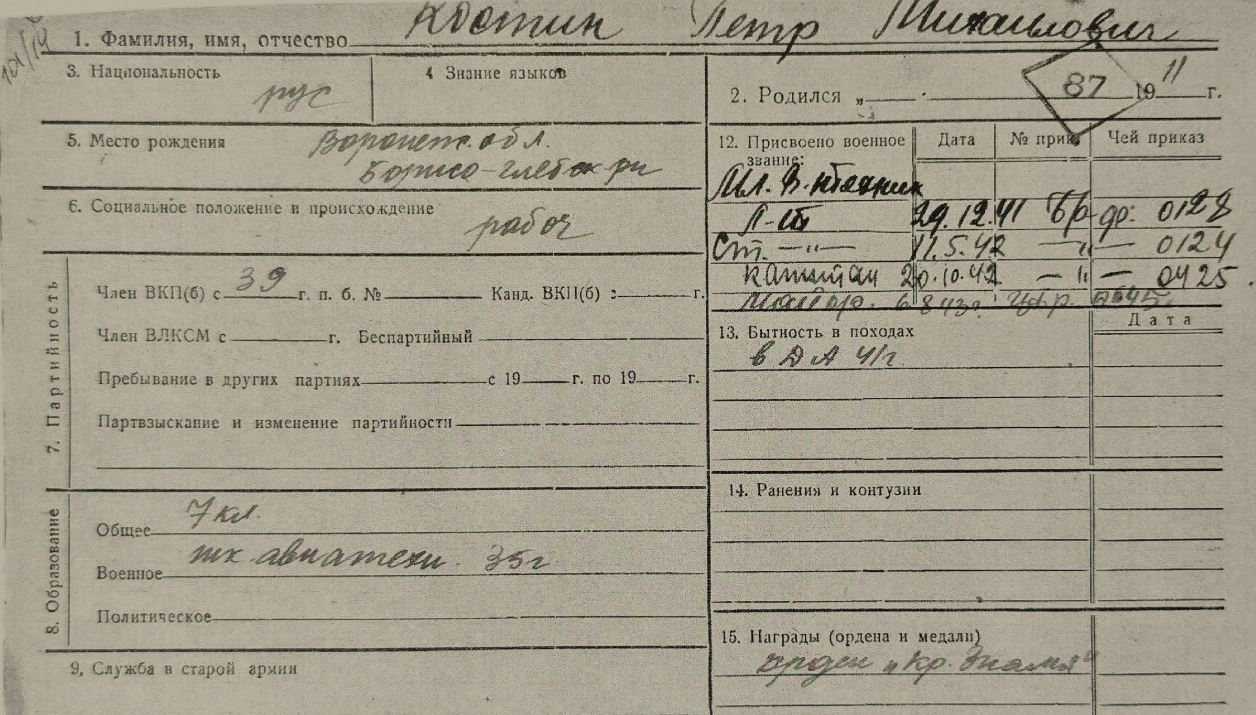 1. Фамилия, имя, отчество Костин Петр Михайлович
3. Национальность рус
4 Знание языков
2. Родился „ 1911 г.
87
5. Место рождения Воронеж. обл.
Борисо-глебск рн
6. Социальное положение и происхождение
рабоч
7. Партийность
Член ВКП(б) с 39 г. п. б. № Канд. ВКП(б) с г.
Член ВЛКСМ с г. Беспартийный
Пребывание в других партиях с 19 г. по 19 г.
Партвзыскание и изменение партийности
8. Образование
Общее 7 кл.
Военное шк. авиатехн. 35г
Политическое
9, Служба в старой армии
12. Присвоено военное звание: Дата № прик. Чей приказ
Мл. В. техник
Л-т 29.12.41 0128
Ст. —„— 11.5.42 —„— 0124
капитан 20.10.42 —„— 0425
Майор. 6 8 43г.
13. Бытность в походах Дата
в ДА 41г.
14. Ранения и контузии
15. Награды (ордена и медали)
орден „Кр. Знамя"